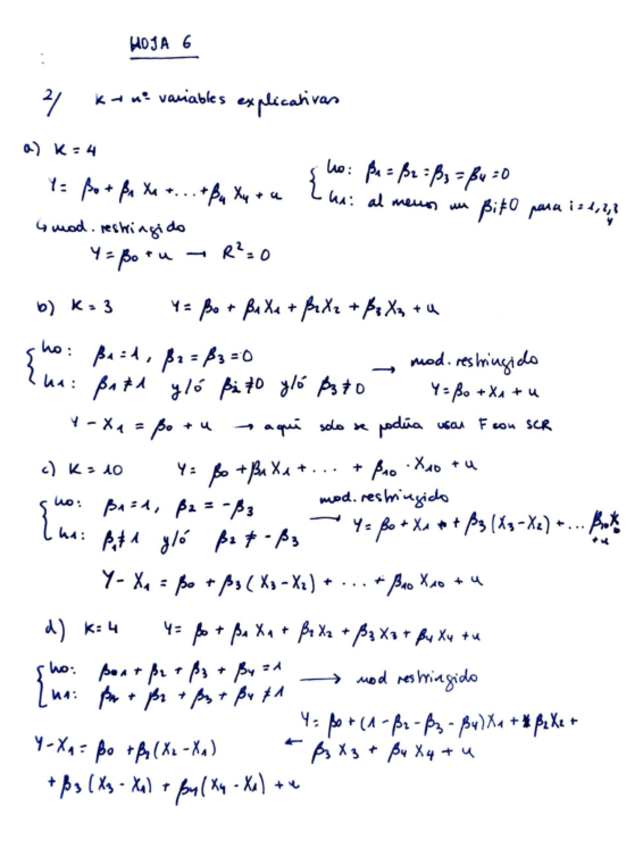 HOJA 6
2/ K → nº variables explicativas
a) K = 4
Y = β0 + β1 X1 + ... + β4 X4 + u
{ h0: β1 = β2 = β3 = β4 = 0
h1: al menos un βi ≠ 0 para i = 1,2,3
4
↳ mod. restringido
Y = β0 + u → R² = 0
b) K = 3 Y = β0 + β1X1 + β2X2 + β3X3 + u
{ h0: β1 = 1, β2 = β3 = 0
h1: β1 ≠ 1 y/ó β2 ≠ 0 y/ó β3 ≠ 0
→ mod. restringido
Y = β0 + X1 + u
Y - X1 = β0 + u → aquí solo se podría usar F con SCR
c) K = 10 Y = β0 + β1X1 + ... + β10 · X10 + u
{ h0: β1 = 1, β2 = -β3
h1: β1 ≠ 1 y/ó β2 ≠ -β3
mod. restringido
→ Y = β0 + X1 + β3 (X3 - X2) + ... β10 X10
+ u
Y - X1 = β0 + β3 (X3 - X2) + ... + β10 X10 + u
d) K = 4 Y = β0 + β1 X1 + β2 X2 + β3 X3 + β4 X4 + u
{ h0: β1 + β2 + β3 + β4 = 1
h1: β1 + β2 + β3 + β4 ≠ 1
→ mod restringido
Y = β0 + (1 - β2 - β3 - β4)X1 + β2X2 +
β3 X3 + β4 X4 + u
←
Y - X1 = β0 + β2 (X2 - X1)
+ β3 (X3 - X1) + β4 (X4 - X1) + u